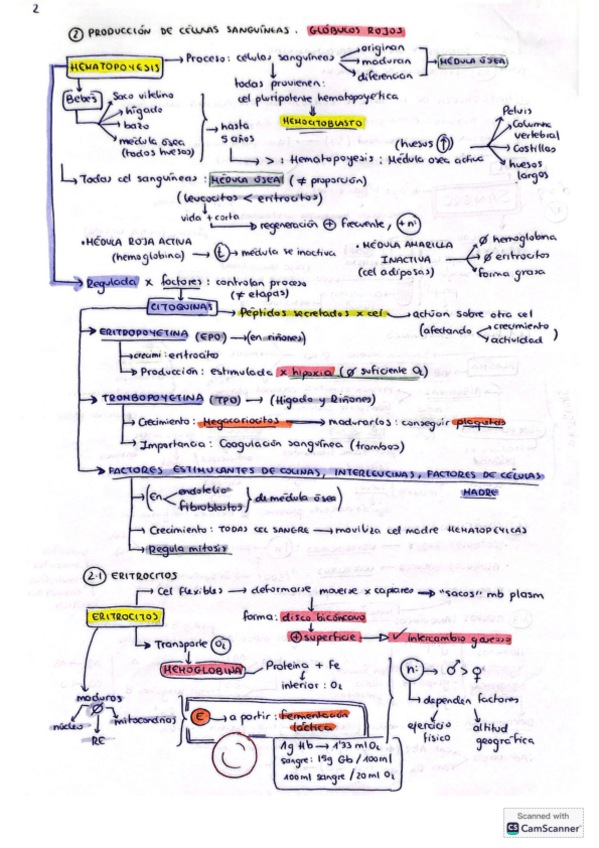 2
② PRODUCCIÓN DE CÉLULAS SANGUÍNEAS. GLÓBULOS ROJOS
HEMATOPOYESIS → Proceso: celulas sanguíneas
originan
maduran
diferencian
MÉDULA ÓSEA
todas provienen:
cel pluripotente hematopoyética
HEMOCITOBLASTO
Bebés
Saco vitelino
hígado
bazo
médula ósea
(todos huesos)
→ hasta
5 años
→ > : Hematopoyesis: Médula osea activa
(huesos ↑)
Pelvis
Columna
vertebral
Costillas
huesos
largos
→ Todas cel sanguíneas: MÉDULA ÓSEA (≠ proporción)
(leucocitos < eritrocitos)
vida + corta
→ regeneración ⊕ frecuente, (+n:)
• MÉDULA ROJA ACTIVA
(hemoglobina) → t → médula se inactiva
• MÉDULA AMARILLA
INACTIVA
(cel adiposas)
Ø hemoglobina
Ø eritrocitos
Forma grasa
→ Regulada x factores: controlan proceso
(≠ etapas)
CITOQUINAS
→ Péptidos secretados x cel → actúan sobre otra cel
(afectando crecimiento
actividad)
→ ERITROPOYETINA (EPO) → (en riñones)
→ crecimi: eritrocito
→ Producción: estimulada x hipoxia (Ø suficiente O₂)
→ TROMBOPOYETINA (TPO) → (Hígado y Riñones)
→ Crecimiento: Megacariocitos → madurarlos: conseguir plaquetas
→ Importancia: Coagulación sanguínea (trombos)
→ FACTORES ESTIMULANTES DE COLINAS, INTERLEUCINAS, FACTORES DE CÉLULAS
MADRE
→ (En endotelio
Fibroblastos } de médula ósea)
→ Crecimiento: TODAS CEL SANGRE → moviliza cel madre HEMATOPEYICAS
→ Regula mitosis
2.1 ERITROCITOS
ERITROCITOS
→ Cel flexibles → deformarse moverse x capilares → "sacos" mb plasm
forma: disco bicóncavo
⊕ superficie → ✓ intercambio gaseoso
→ Transporte O₂
HEMOGLOBINA → Proteína + Fe
interior: O₂
n: → ♂ > ♀
→ dependen factores
ejercicio
físico
altitud
geográfica
maduros
Ø
núcleo
RE
mitocondrias
E → a partir: fermentación
láctica
1g Hb → 1'33 ml O₂
sangre: 15g Gb / 100ml
100ml sangre / 20 ml O₂
Scanned with
CS CamScanner